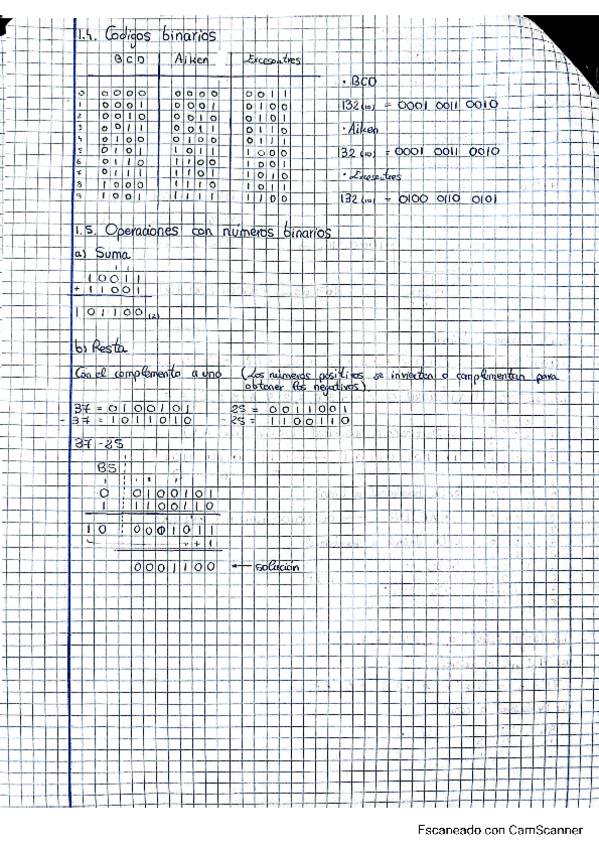 1.4. Codigos binarios
BCD Aiken Exceso tres
0 0000 0000 0011
1 0001 0001 0100
2 0010 0010 0101
3 0011 0011 0110
4 0100 0100 0111
5 0101 1011 1000
6 0110 1100 1001
7 0111 1101 1010
8 1000 1110 1011
9 1001 1111 1100
· BCD
132(10) = 0001 0011 0010
· Aiken
132(10) = 0001 0011 0010
· Exceso tres
132(10) = 0100 0110 0101
1.5. Operaciones con números binarios
a) Suma
1 1
10011
+ 11001
101100(2)
b) Resta
Con el complemento a uno (Los números positivos se invierten o complementan para
obtener los negativos).
37 = 0100101 25 = 0011001
- 37 = 1011010 - 25 = 1100110
37 - 25
BS
0 0100101
1 1100110
10 0001011
+ 1
0001100 ← solución
Escaneado con CamScanner